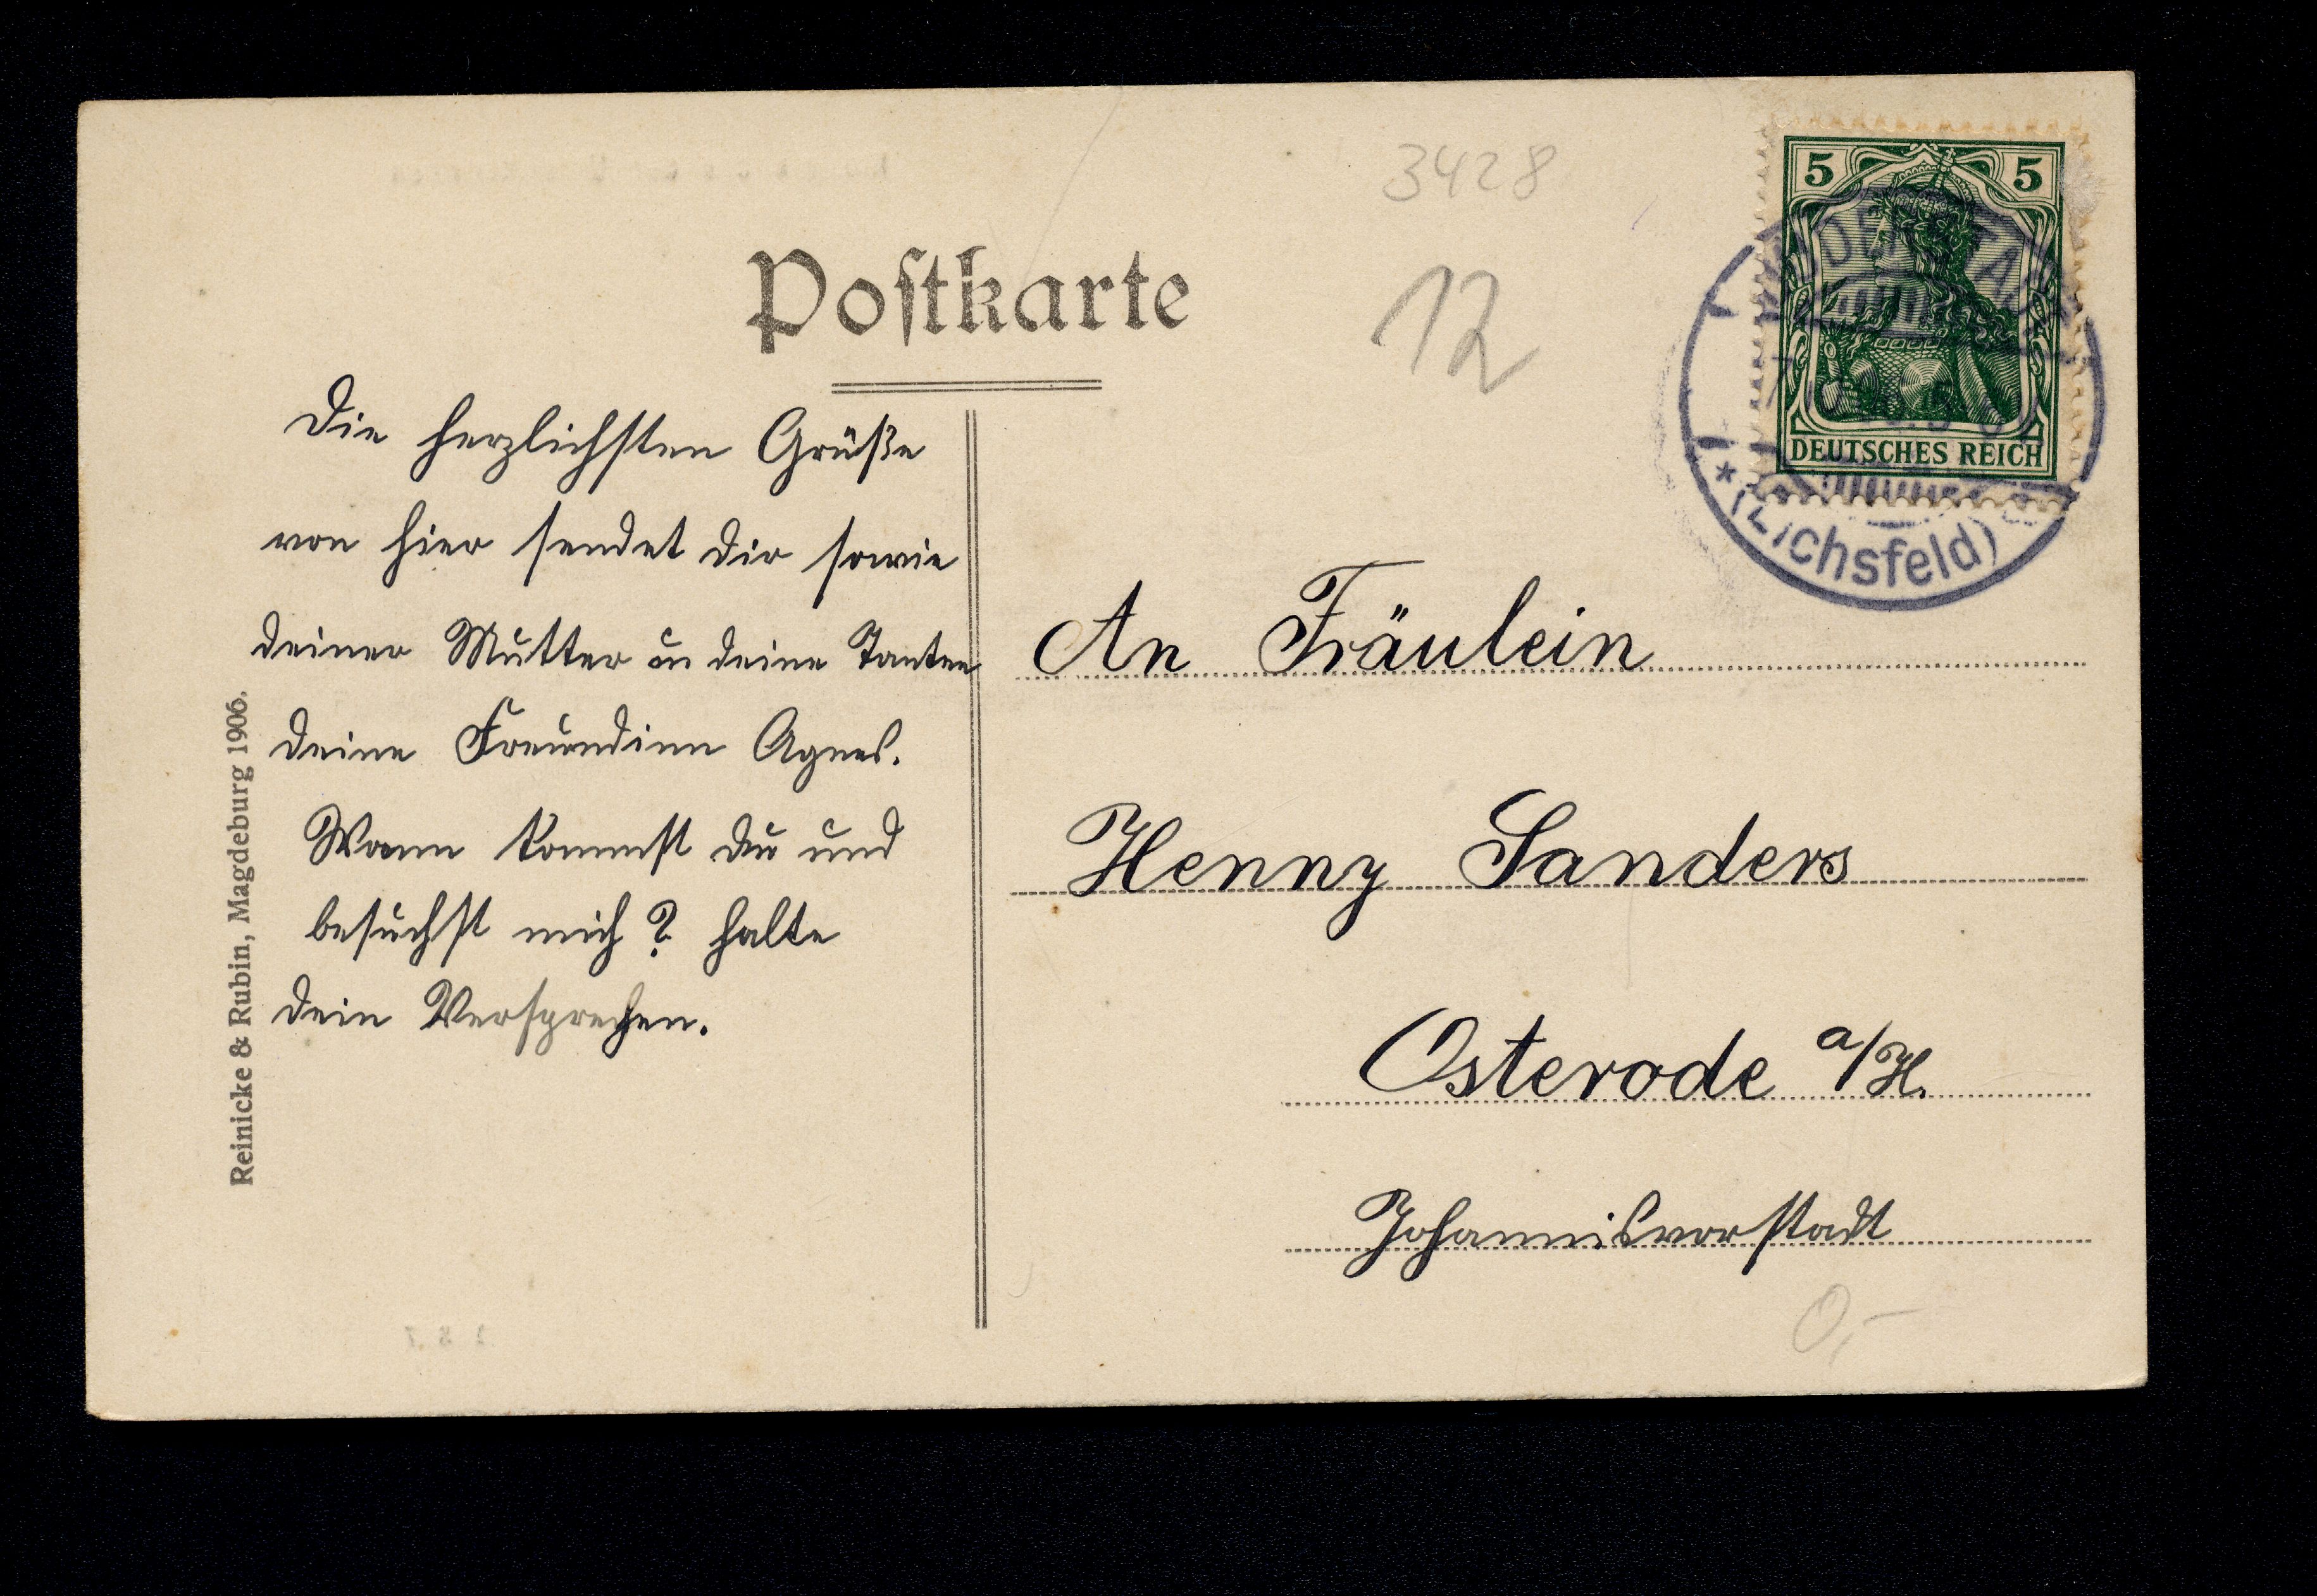 3428
Postkarte
12
5 5
DEUTSCHES REICH
(Eichsfeld)
Die herzlichsten Grüße
von hier sendet dir sowie
deiner Mutter u deine Tanten
deine Freundinn Agnes.
Wann kommst du und
besuchst mich? halte
dein Versprechen.
An Fräulein
Henny Sanders
Osterode a/H.
Johannisvorstadt
0,-
Reinicke & Rubin, Magdeburg 1906.